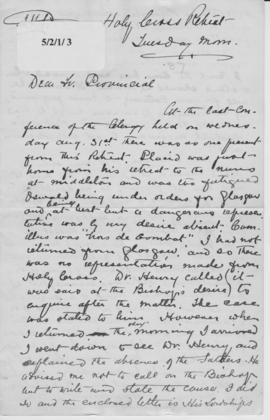 5/2/1/3
Holy Cross Retreat
Tuesday Morn.
Dear Fr. Provincial
At the last Con-
ference of the Clergy held on wednes-
day aug. 31st there was no one present
from this Retreat. Placid was just
home from his retreat to the nuns
at middleton and was too fatigued
Oswald being under orders for Glasgow
and at best but a dangerous represen-
tative was by my desire absent. Cam-
illus was "hors de combat". I had not
returned from Glasgow, and so there
was no representation made from
Holy Cross. Dr. Henry called (it
was said at the Bishop's desire) to
enquire after the matter. The case
was stated to him. However when
I returned the morning I arrived
I went down to see Dr. Henry and
explained the absence of the Fathers. He
advised me not to call on the Bishop
but to write and state the cause. I did
so and the enclosed letter is His Lordship's